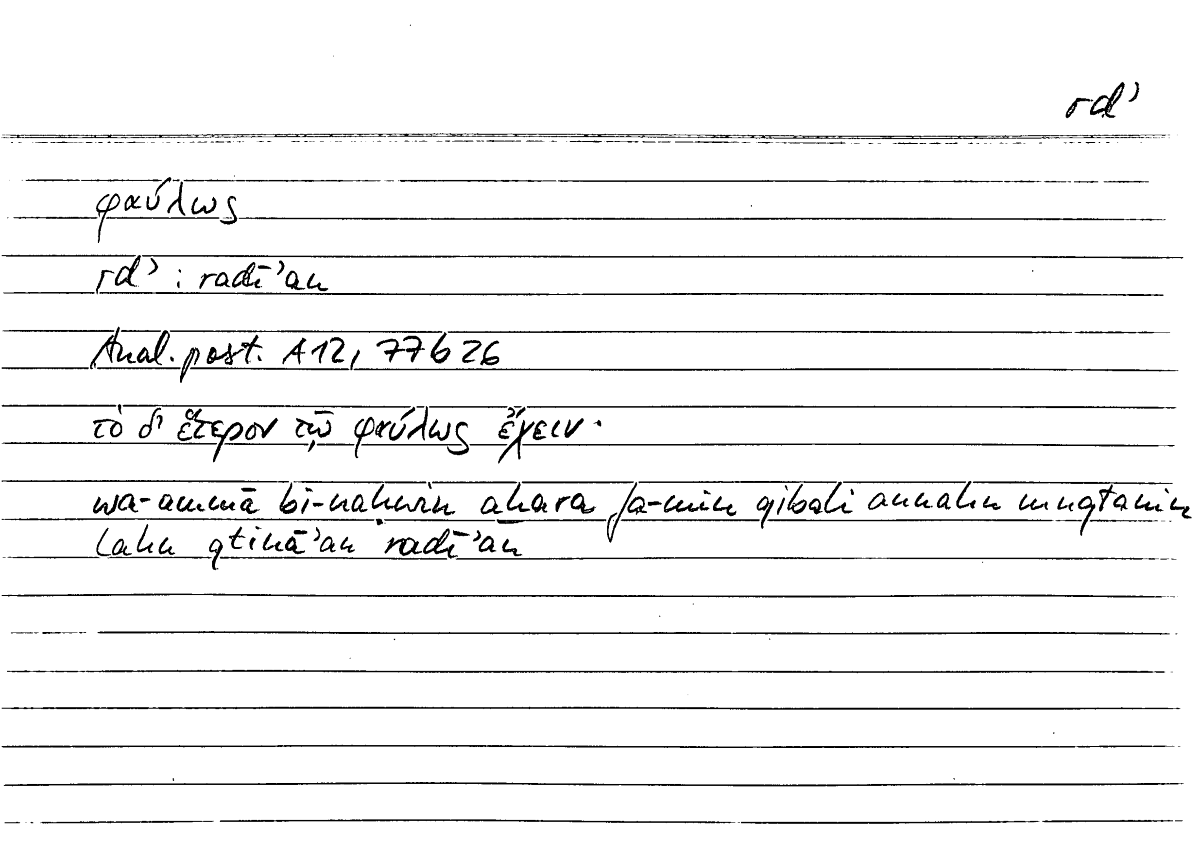 rdʾ
φαύλως
rdʾ : radīʾan
Anal. post. A12, 77b26
τὸ δ' ἕτερον τῷ φαύλως ἔχειν·
wa-ammā bi-nahwin ahara fa-min qibali annahu muqtanin
lahu qtināʾan radīʾan